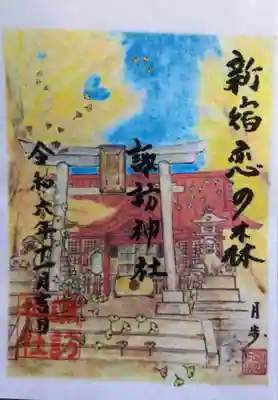 新宿恋の森
諏訪神社
令和六年十一月吉日
月歩
諏訪
神社